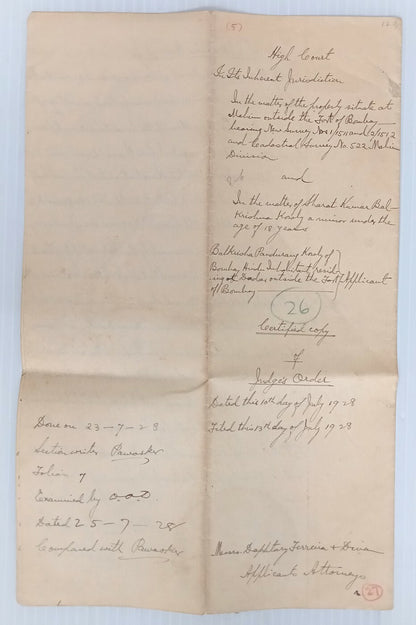 (5)
High Court
In Its Inherent Jurisdiction
In the matter of the property situate at
Mahim outside the Fort of Bombay
bearing New Survey Nos 1/1511 and 2/1512
and Cadastral Survey No. 522 Mahim
Division
and
In the matter of Bharat Kumar Bal-
Krishna Kooly a minor under the
age of 18 years
Balkrishna Pandurang Kooly of
Bombay Hindu Inhabitant resid-
ing at Dadar outside the Fort Applicant
of Bombay
26
Certified copy
of
Judge's Order
Dated this 10th day of July 1928
Filed this 13th day of July 1928
Messrs Daphtary Ferreira & Divan
Applicants Attorneys
27
Done on 23-7-28
Section writer Pawasker
Folios 7
Examined by
Dated 25-7-28
Compared with Pawasker